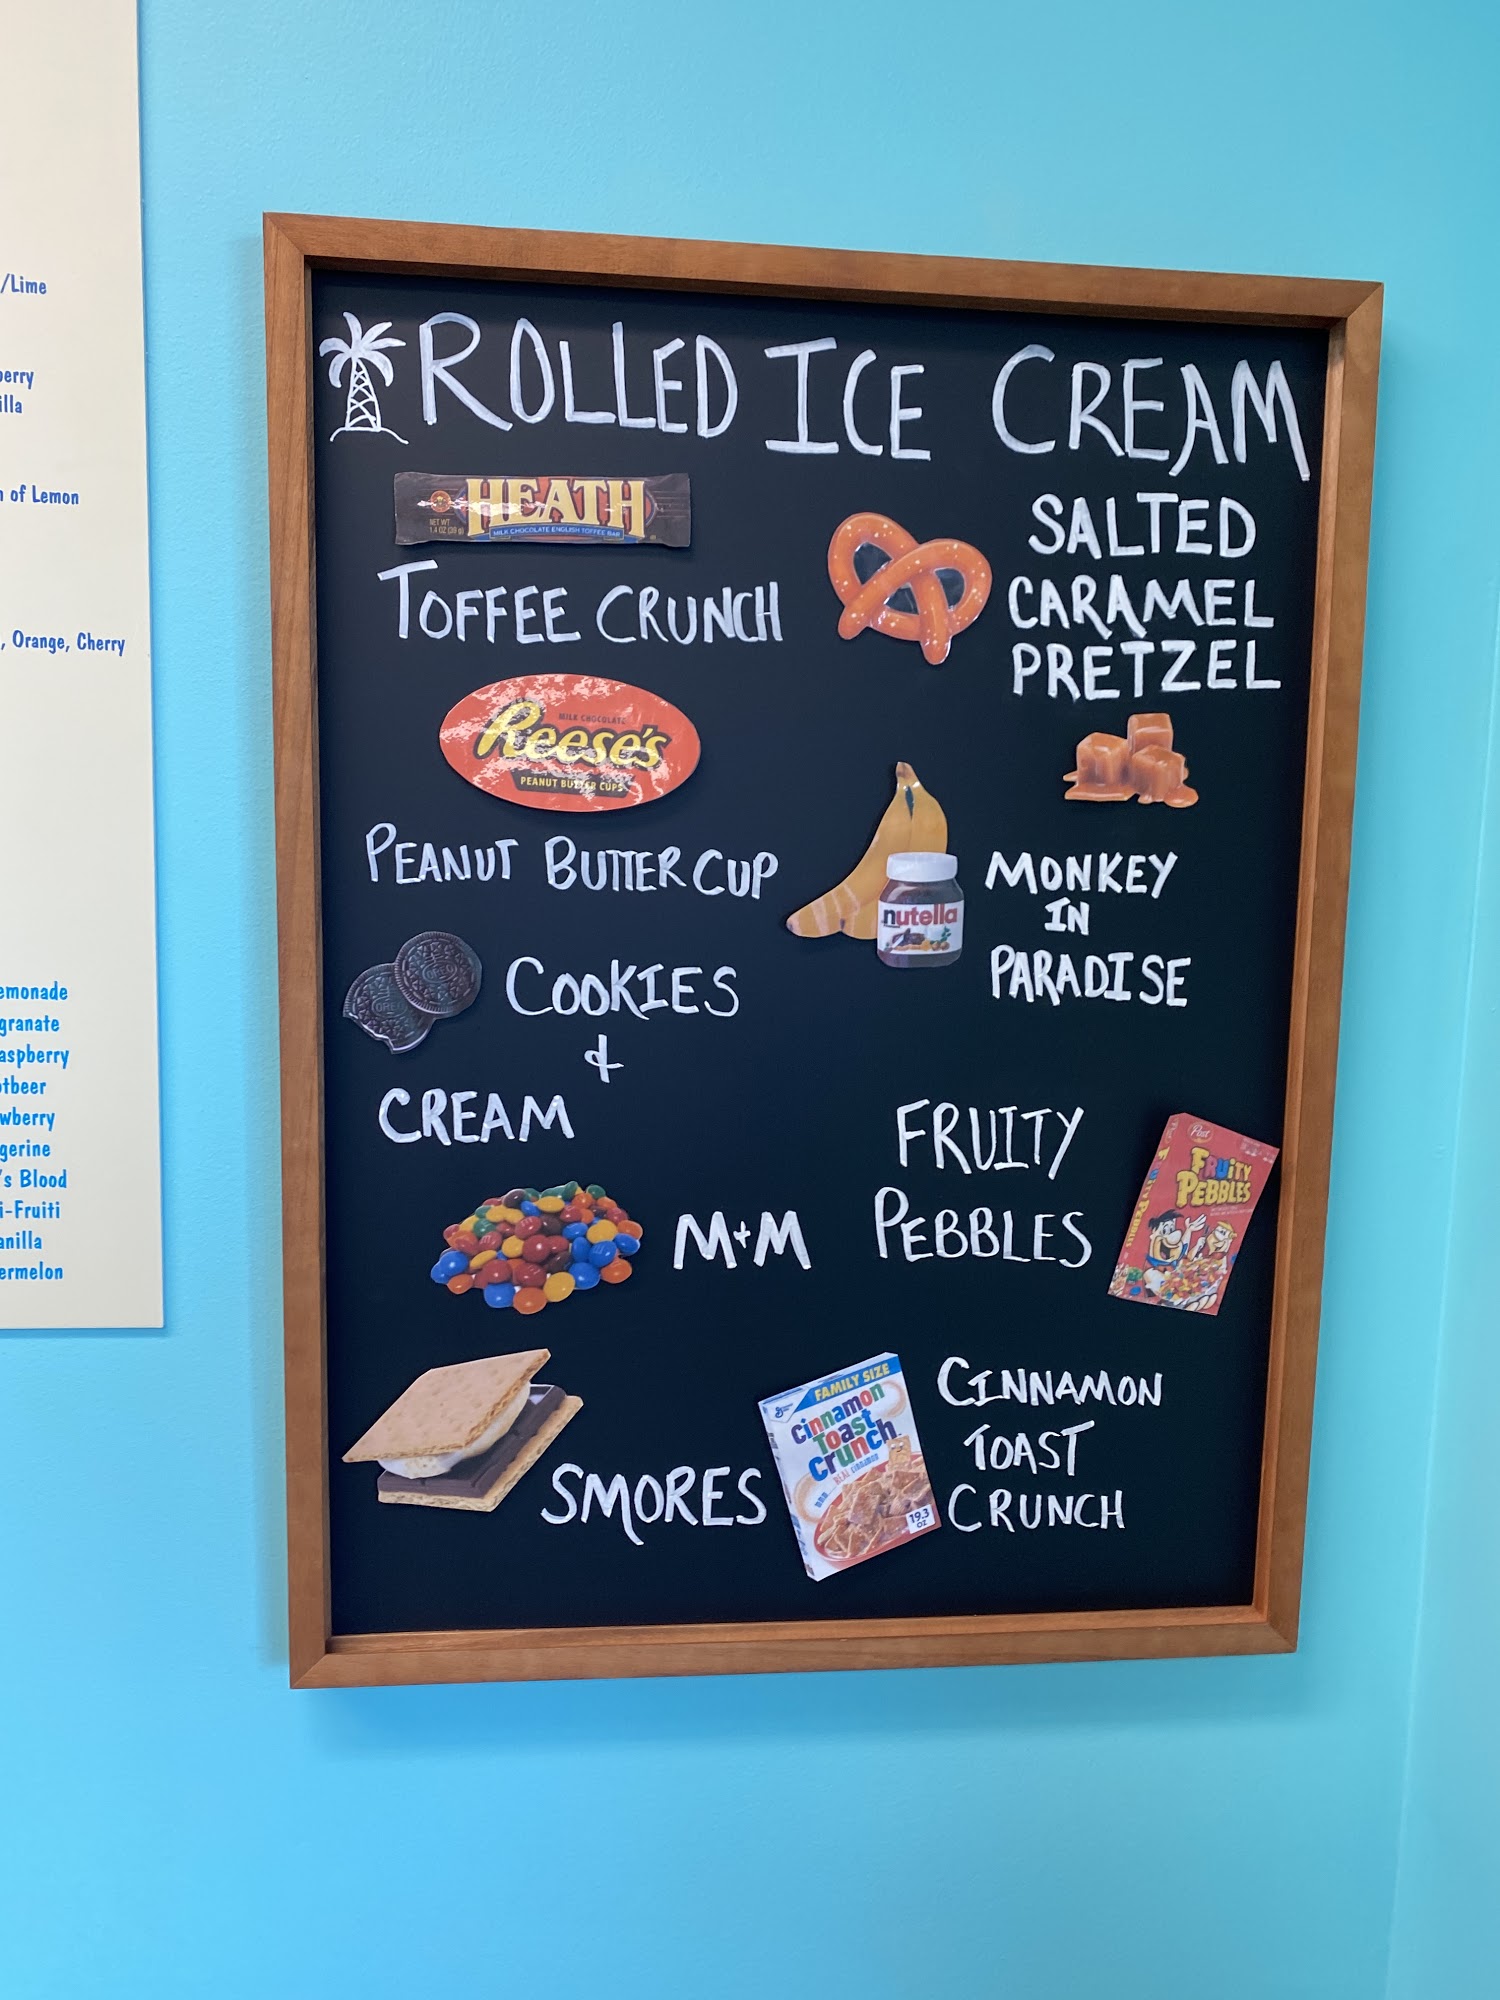 /Lime
n of Lemon
, Orange, Cherry
's Blood
i-Fruiti
ROLLED ICE CREAM
HEATH
NET WT
1.4 OZ (39 g)
MILK CHOCOLATE ENGLISH TOFFEE BAR
TOFFEE CRUNCH
MILK CHOCOLATE
Reese's
PEANUT BUTTER CUPS
PEANUT BUTTER CUP
OREO
OREO
COOKIES
&
CREAM
M+M
SMORES
SALTED
CARAMEL
PRETZEL
nutella
MONKEY
IN
PARADISE
FRUITY
PEBBLES
Post
FRUITY
PEBBLES
FAMILY SIZE
Cinnamon
Toast
Crunch
REAL CINNAMON
19.3
OZ
CINNAMON
TOAST
CRUNCH